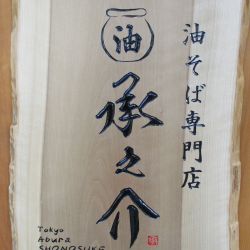 油そば専門店
油
承之介
Tokyo
Abura
SHONOSUKE